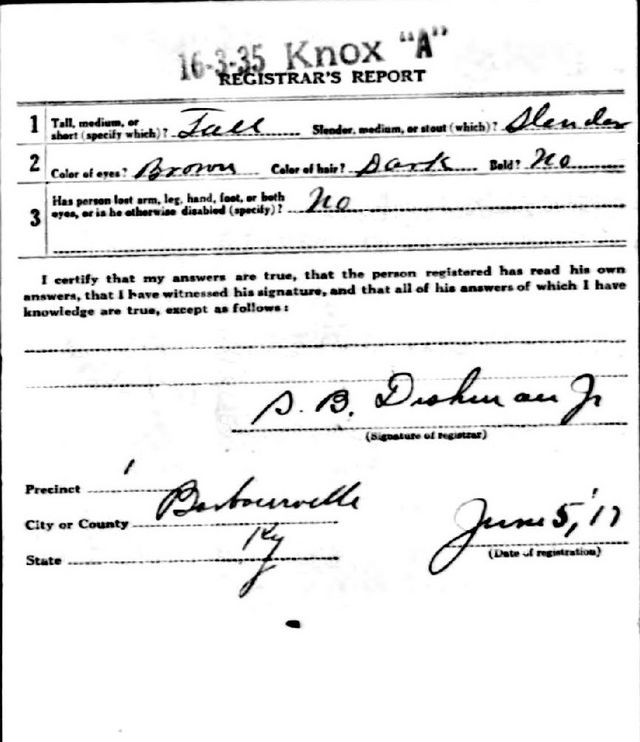 16-3-35 Knox "A"
REGISTRAR'S REPORT
1 Tall, medium, or short (specify which)? Tall Slender, medium, or stout (which)? Slender
2 Color of eyes? Brown Color of hair? Dark Bald? No
3 Has person lost arm, leg, hand, foot, or both eyes, or is he otherwise disabled (specify)? No
I certify that my answers are true, that the person registered has read his own
answers, that I have witnessed his signature, and that all of his answers of which I have
knowledge are true, except as follows:
S. B. Dishman Jr
(Signature of registrar)
Precinct 1
City or County Barbourville
State Ky
June 5, '17
(Date of registration)